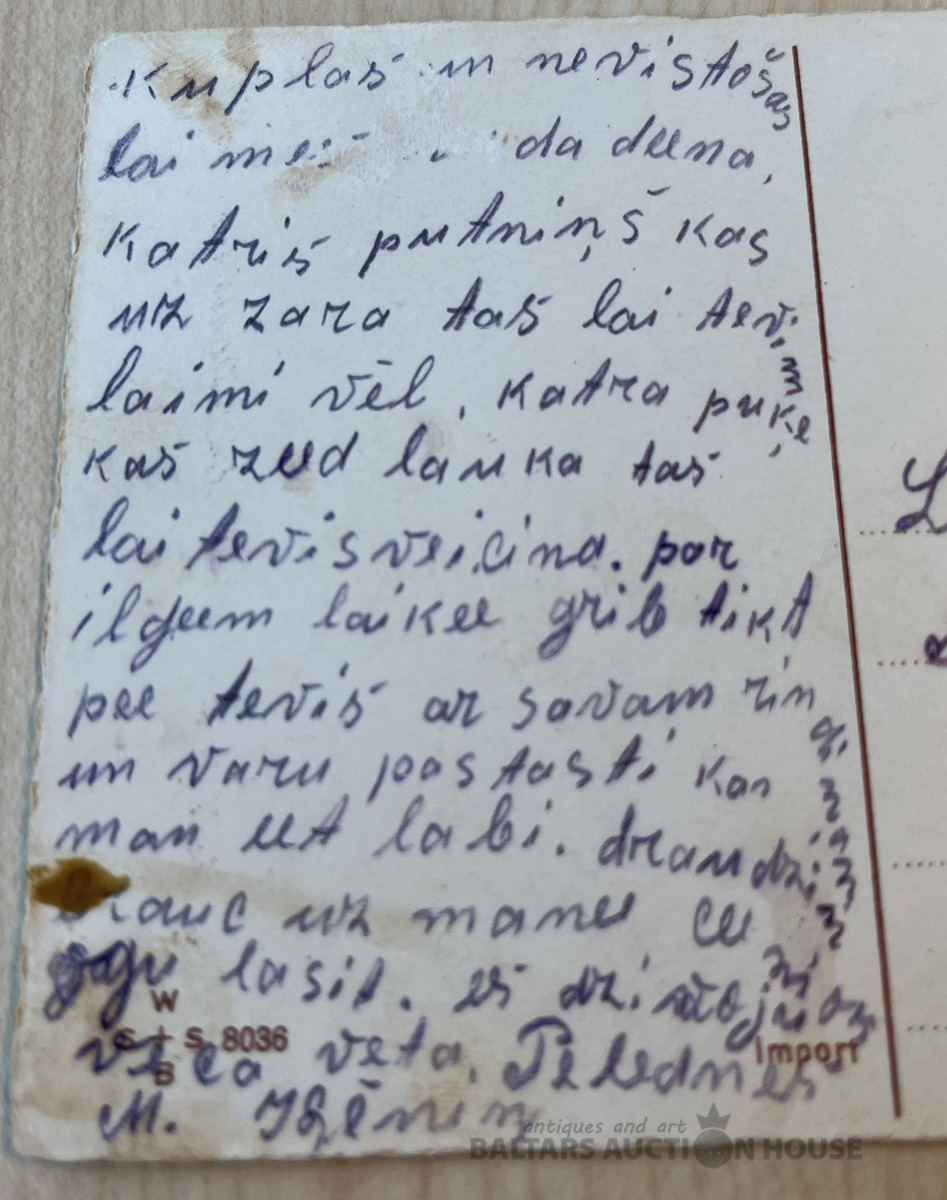 Kuplas un nevistošas
lai mež da deena,
Katris putniņš kas
uz zara tas lai tevim
laimi vēl, katra puķe
kas zeed lauka tas
lai tevi sveicina. par
ilgeem laikee grib tikt
pee tevis ar savam rin
un varu pastasti kan
man eet labi. draudzi
brauc uz manee
ogu lasit. es dzi
veca veta. Pelednes
M.
W
S + S 8036
B
Import
antiques and art
BALTARS AUCTION HOUSE